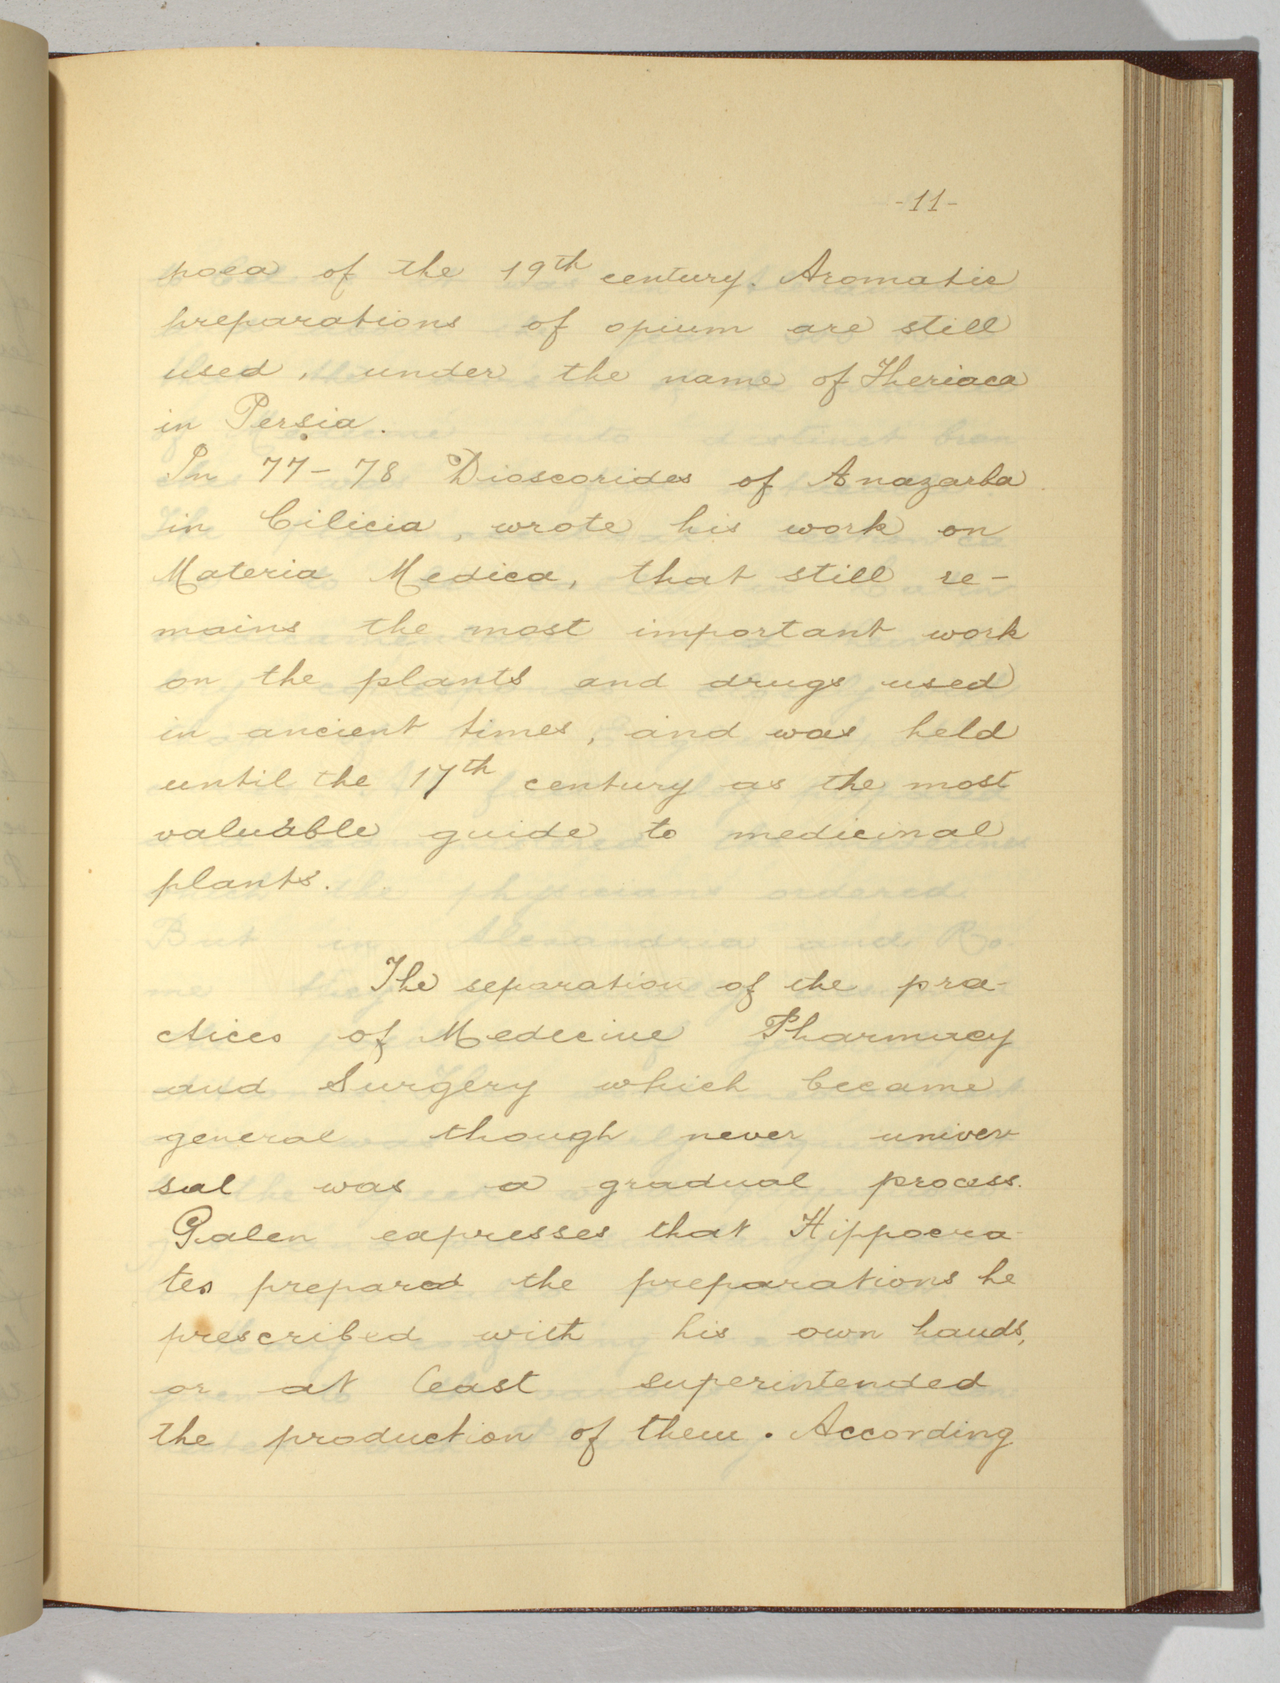 -11-
poea of the 19th century. Aromatic
preparations of opium are still
used, under the name of Theriaca
in Persia.
In 77-78 Dioscorides of Anazarba
in Cilicia, wrote his work on
Materia Medica, that still re-
mains the most important work
on the plants and drugs used
in ancient times, and was held
until the 17th century as the most
valuable guide to medicinal
plants.
The separation of the pra-
ctices of Medecine Pharmacy
and Surgery which became
general though never univer-
sal was a gradual process.
Galen expresses that Hippocra-
tes prepared the preparations he
prescribed with his own hands,
or at least superintended
the production of them. According